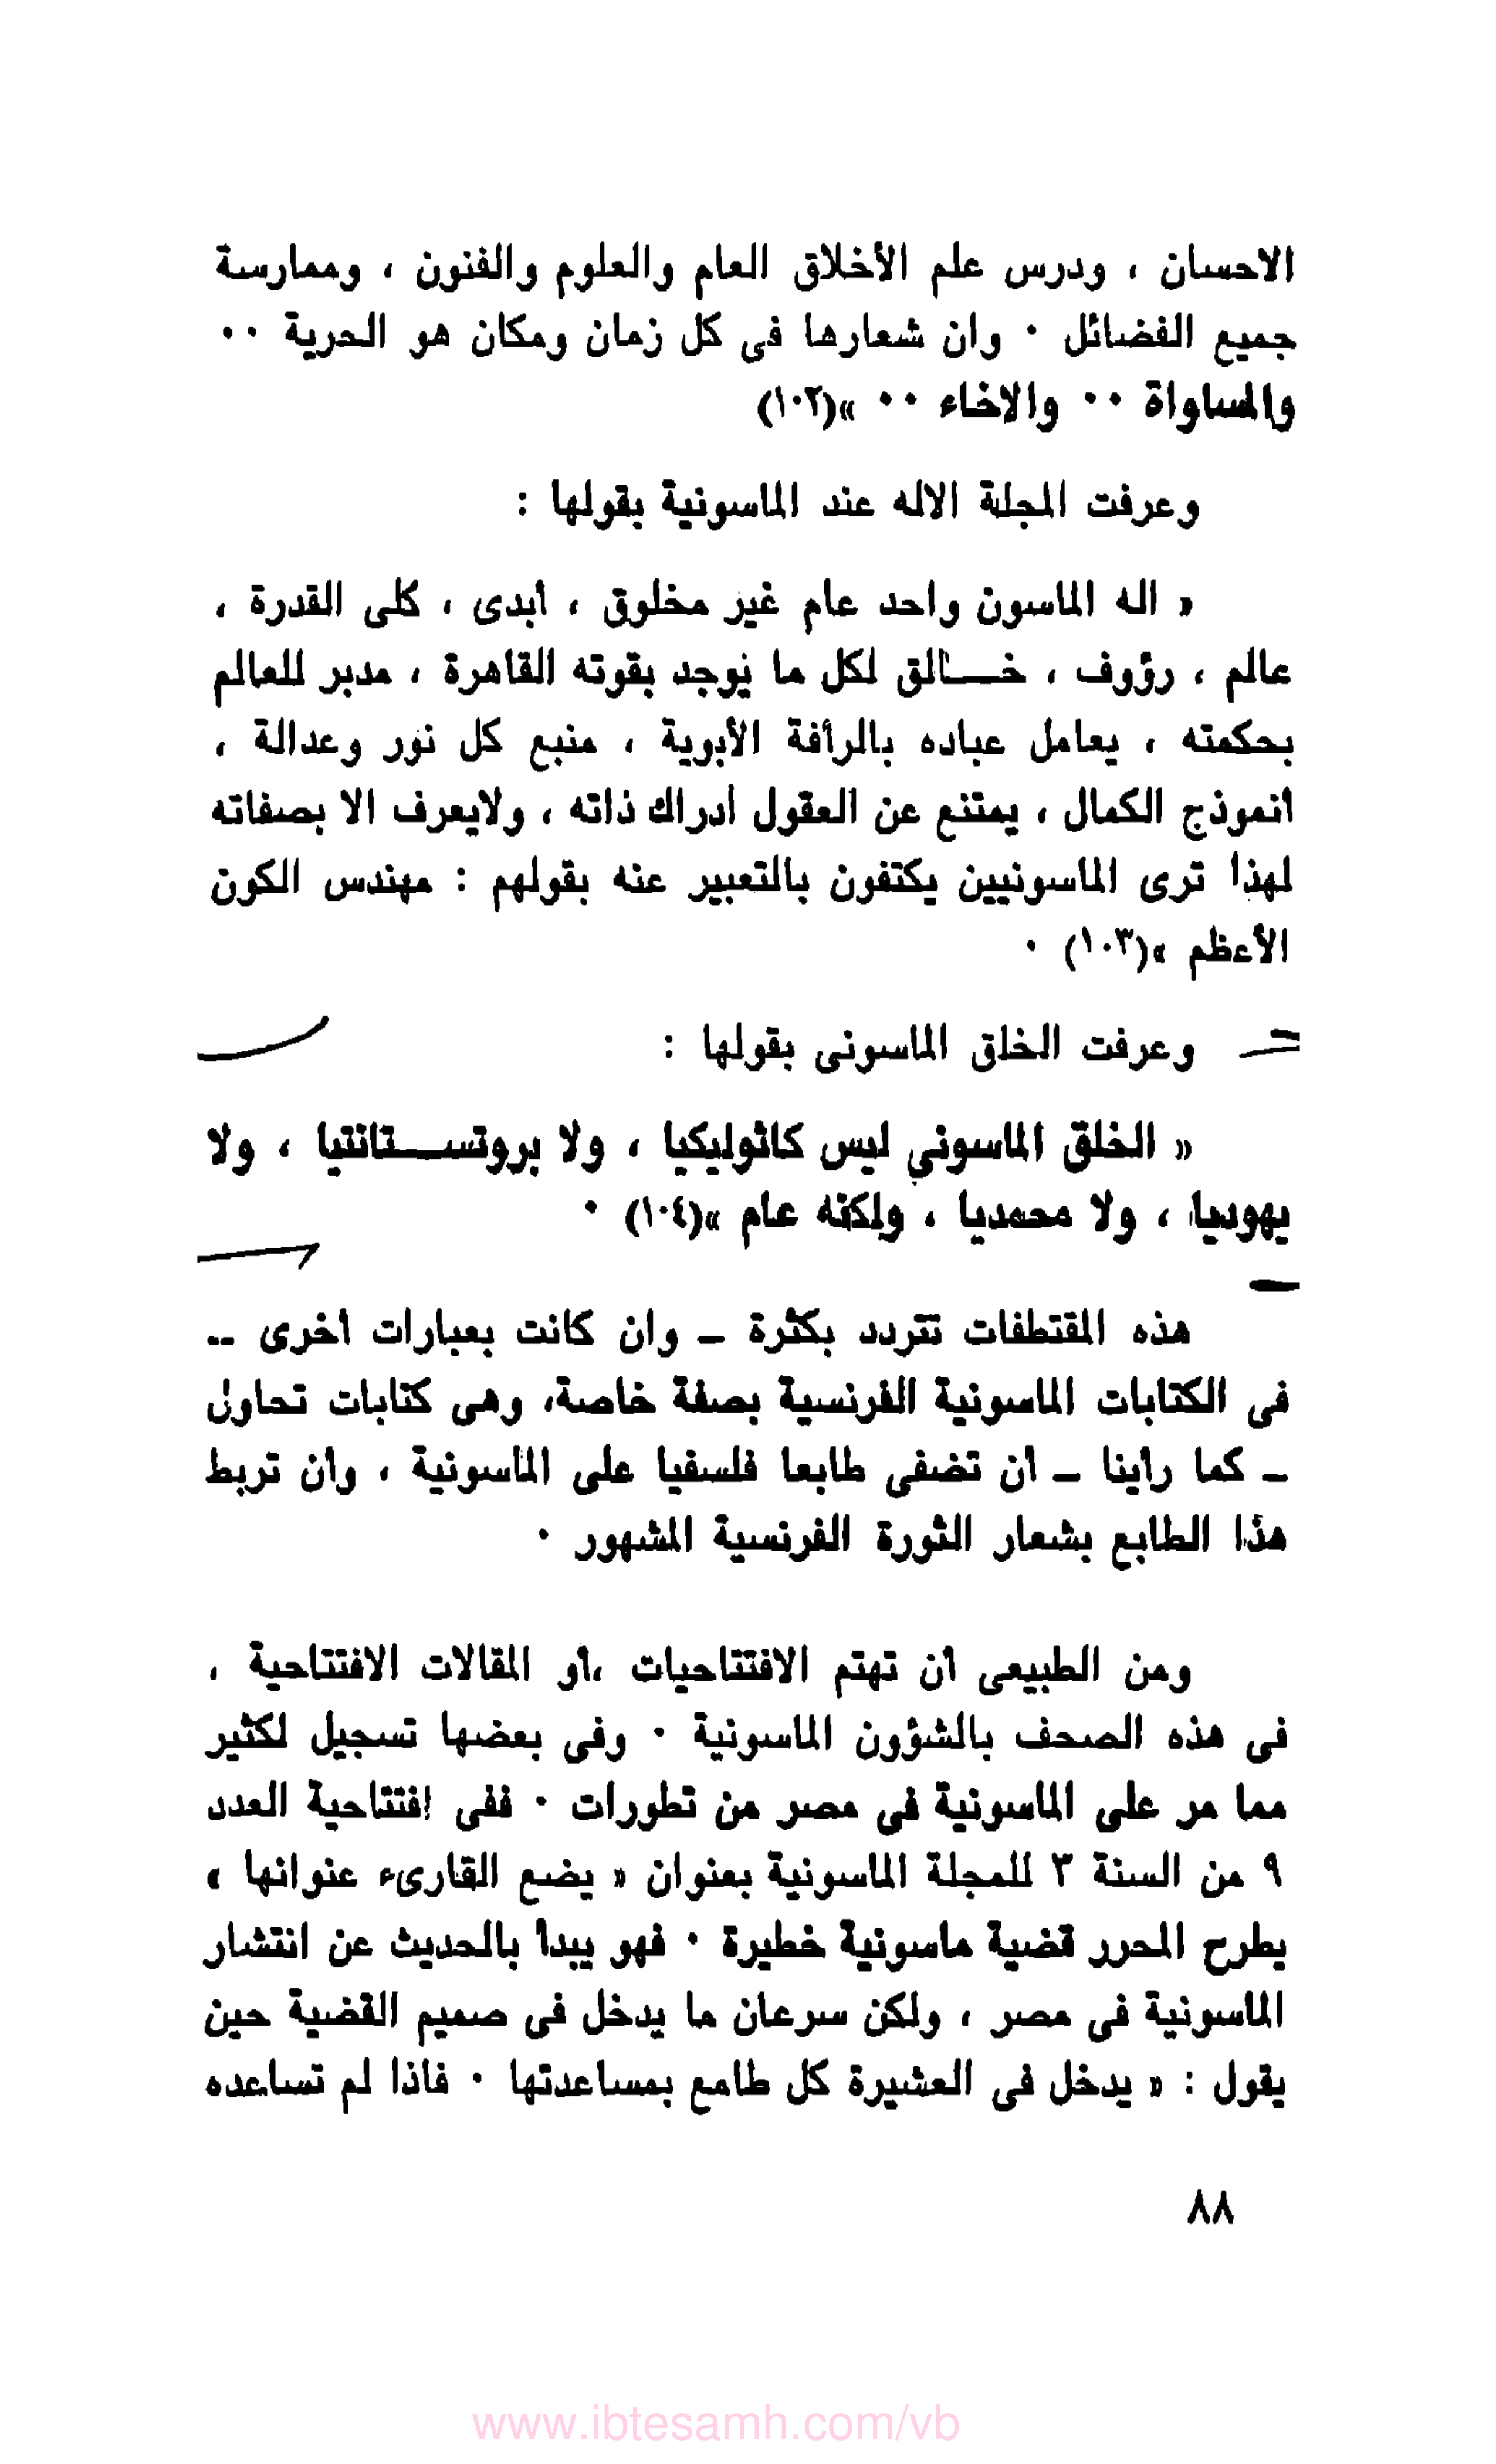 الاحسان ، ودرس علم الأخلاق العام والعلوم والفنون ، وممارسة
جميع الفضائل ٠ وان شعارها فى كل زمان ومكان هو الحرية ٠٠
والمساواة ٠٠ والاخاء ٠٠ »(١٠٢)
وعرفت المجلة الاله عند الماسونية بقولها :
« اله الماسون واحد عام غير مخلوق ، أبدى ، كلى القدرة ،
عالم ، رؤوف ، خـــالق لكل ما يوجد بقوته القاهرة ، مدبر للعالم
بحكمته ، يعامل عباده بالرأفة الأبوية ، منبع كل نور وعدالة ،
أنموذج الكمال ، يمتنع عن العقول ادراك ذاته ، ولايعرف الا بصفاته
لهذا ترى الماسونيين يكتفون بالتعبير عنه بقولهم : مهندس الكون
الأعظم »(١٠٣) ٠
وعرفت الخلق الماسونى بقولها :
« الخلق الماسوني ليس كاثوليكيا ، ولا بروتســـتانتيا ، ولا
يهوديا ، ولا محمديا ، ولكنه عام »(١٠٤) ٠
هذه المقتطفات تتردد بكثرة ــ وان كانت بعبارات أخرى ــ
فى الكتابات الماسونية الفرنسية بصفة خاصة، وهى كتابات تحاول
ــ كما رأينا ــ أن تضفى طابعا فلسفيا على الماسونية ، وأن تربط
هذا الطابع بشعار الثورة الفرنسية المشهور ٠
ومن الطبيعى أن تهتم الافتتاحيات ،أو المقالات الافتتاحية ،
فى هذه الصحف بالشؤون الماسونية ٠ وفى بعضها تسجيل لكثير
مما مر على الماسونية فى مصر من تطورات ٠ ففى إفتتاحية العدد
٩ من السنة ٣ للمجلة الماسونية بعنوان « يضع القارىء عنوانها »
يطرح المحرر قضية ماسونية خطيرة ٠ فهو يبدأ بالحديث عن انتشار
الماسونية فى مصر ، ولكن سرعان ما يدخل فى صميم القضية حين
يقول : « يدخل فى العشيرة كل طامع بمساعدتها ٠ فاذا لم تساعده
٨٨
www.ibtesamh.com/vb